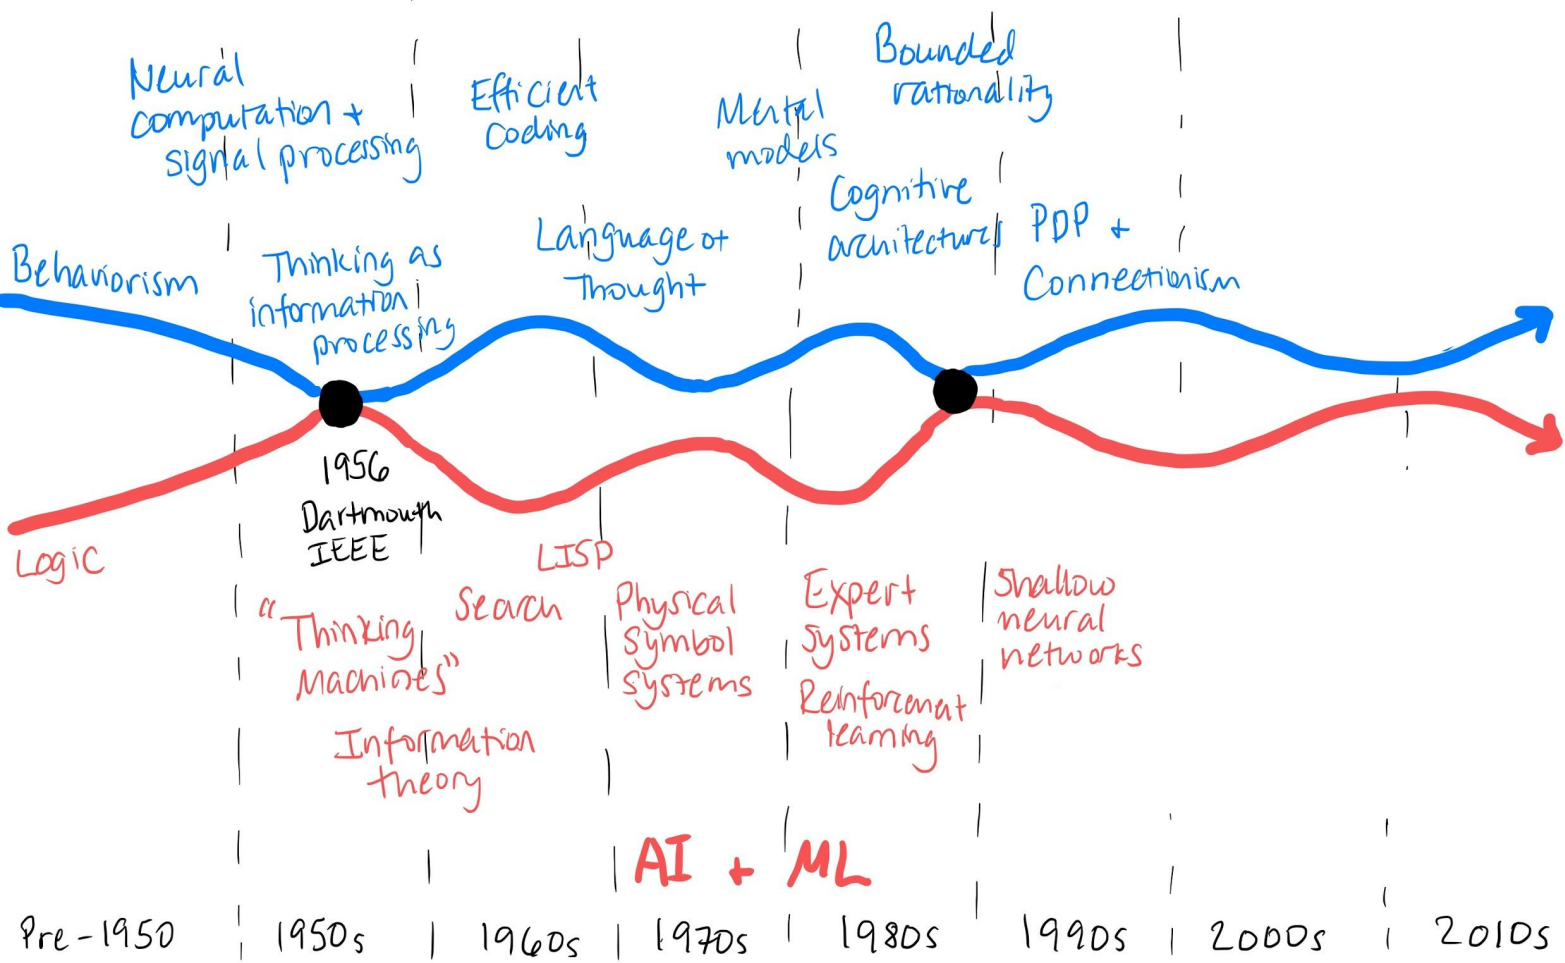 Neural
computation +
signal processing
Efficient
Coding
Mental
models
Bounded
rationality
Cognitive
architectures
Behaviorism
Thinking as
information
processing
Language of
Thought
PDP +
Connectionism
1956
Dartmouth
IEEE
Logic
LISP
"Thinking
Machines"
Search
Physical
Symbol
Systems
Expert
Systems
Shallow
neural
networks
Reinforcement
learning
Information
theory
AI + ML
Pre-1950 1950s 1960s 1970s 1980s 1990s 2000s 2010s